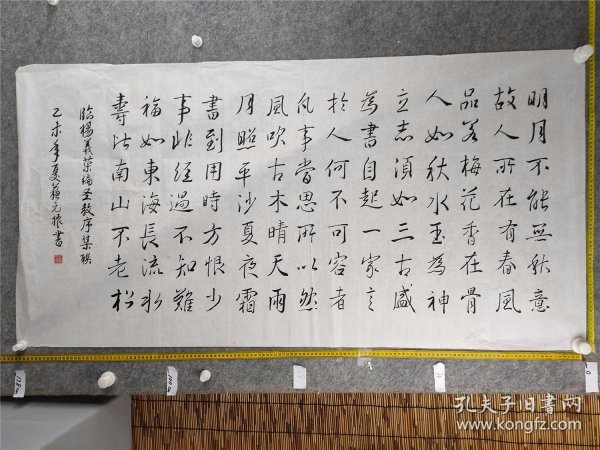 明月不能無秋意
故人所在有春風
品若梅花香在骨
人如秋水玉為神
立志須如三古盛
為書自起一家言
於人何不可容者
凡事當思所以然
風吹古木晴天雨
月照平沙夏夜霜
書到用時方恨少
事非經過不知難
福如東海長流水
壽比南山不老松
臨楊義葉編圣教序集联
乙未年夏蘇元振書
孔夫子旧書网
www.kongfz.com